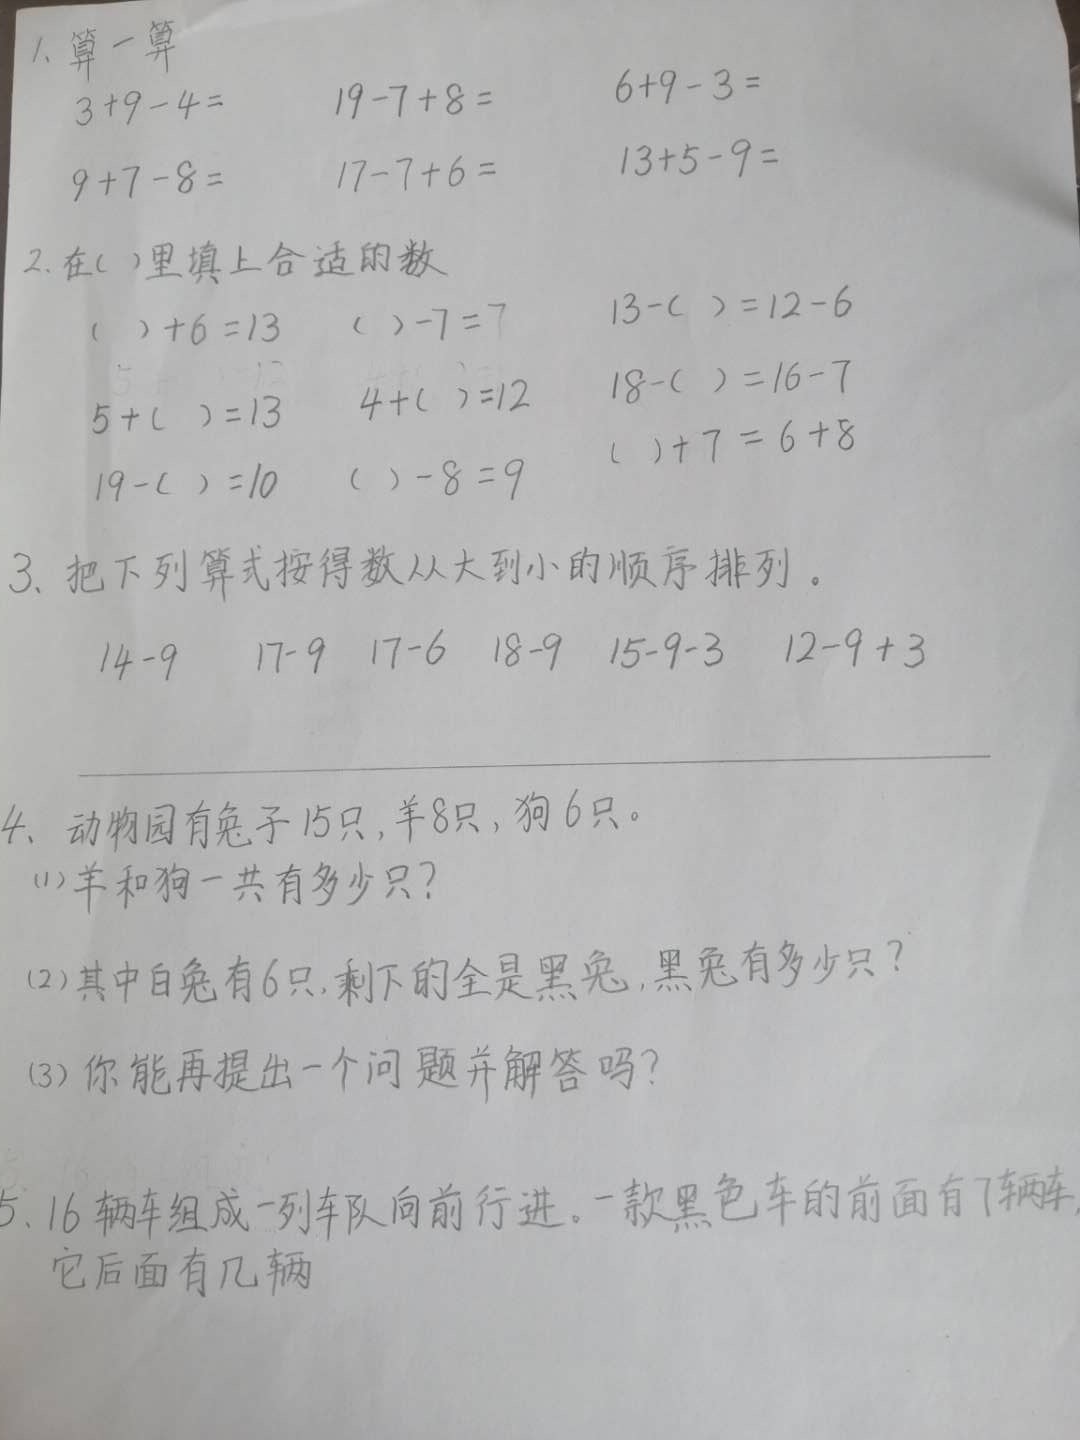 1、算一算
3+9-4= 19-7+8= 6+9-3=
9+7-8= 17-7+6= 13+5-9=
2.在( )里填上合适的数
( )+6=13 ( )-7=7 13-( )=12-6
5+( )=13 4+( )=12 18-( )=16-7
19-( )=10 ( )-8=9 ( )+7=6+8
3、把下列算式按得数从大到小的顺序排列。
14-9 17-9 17-6 18-9 15-9-3 12-9+3
4、动物园有兔子15只,羊8只,狗6只。
(1)羊和狗一共有多少只?
(2)其中白兔有6只,剩下的全是黑兔,黑兔有多少只?
(3)你能再提出一个问题并解答吗?
5、16辆车组成一列车队向前行进。一款黑色车的前面有7辆车,
它后面有几辆